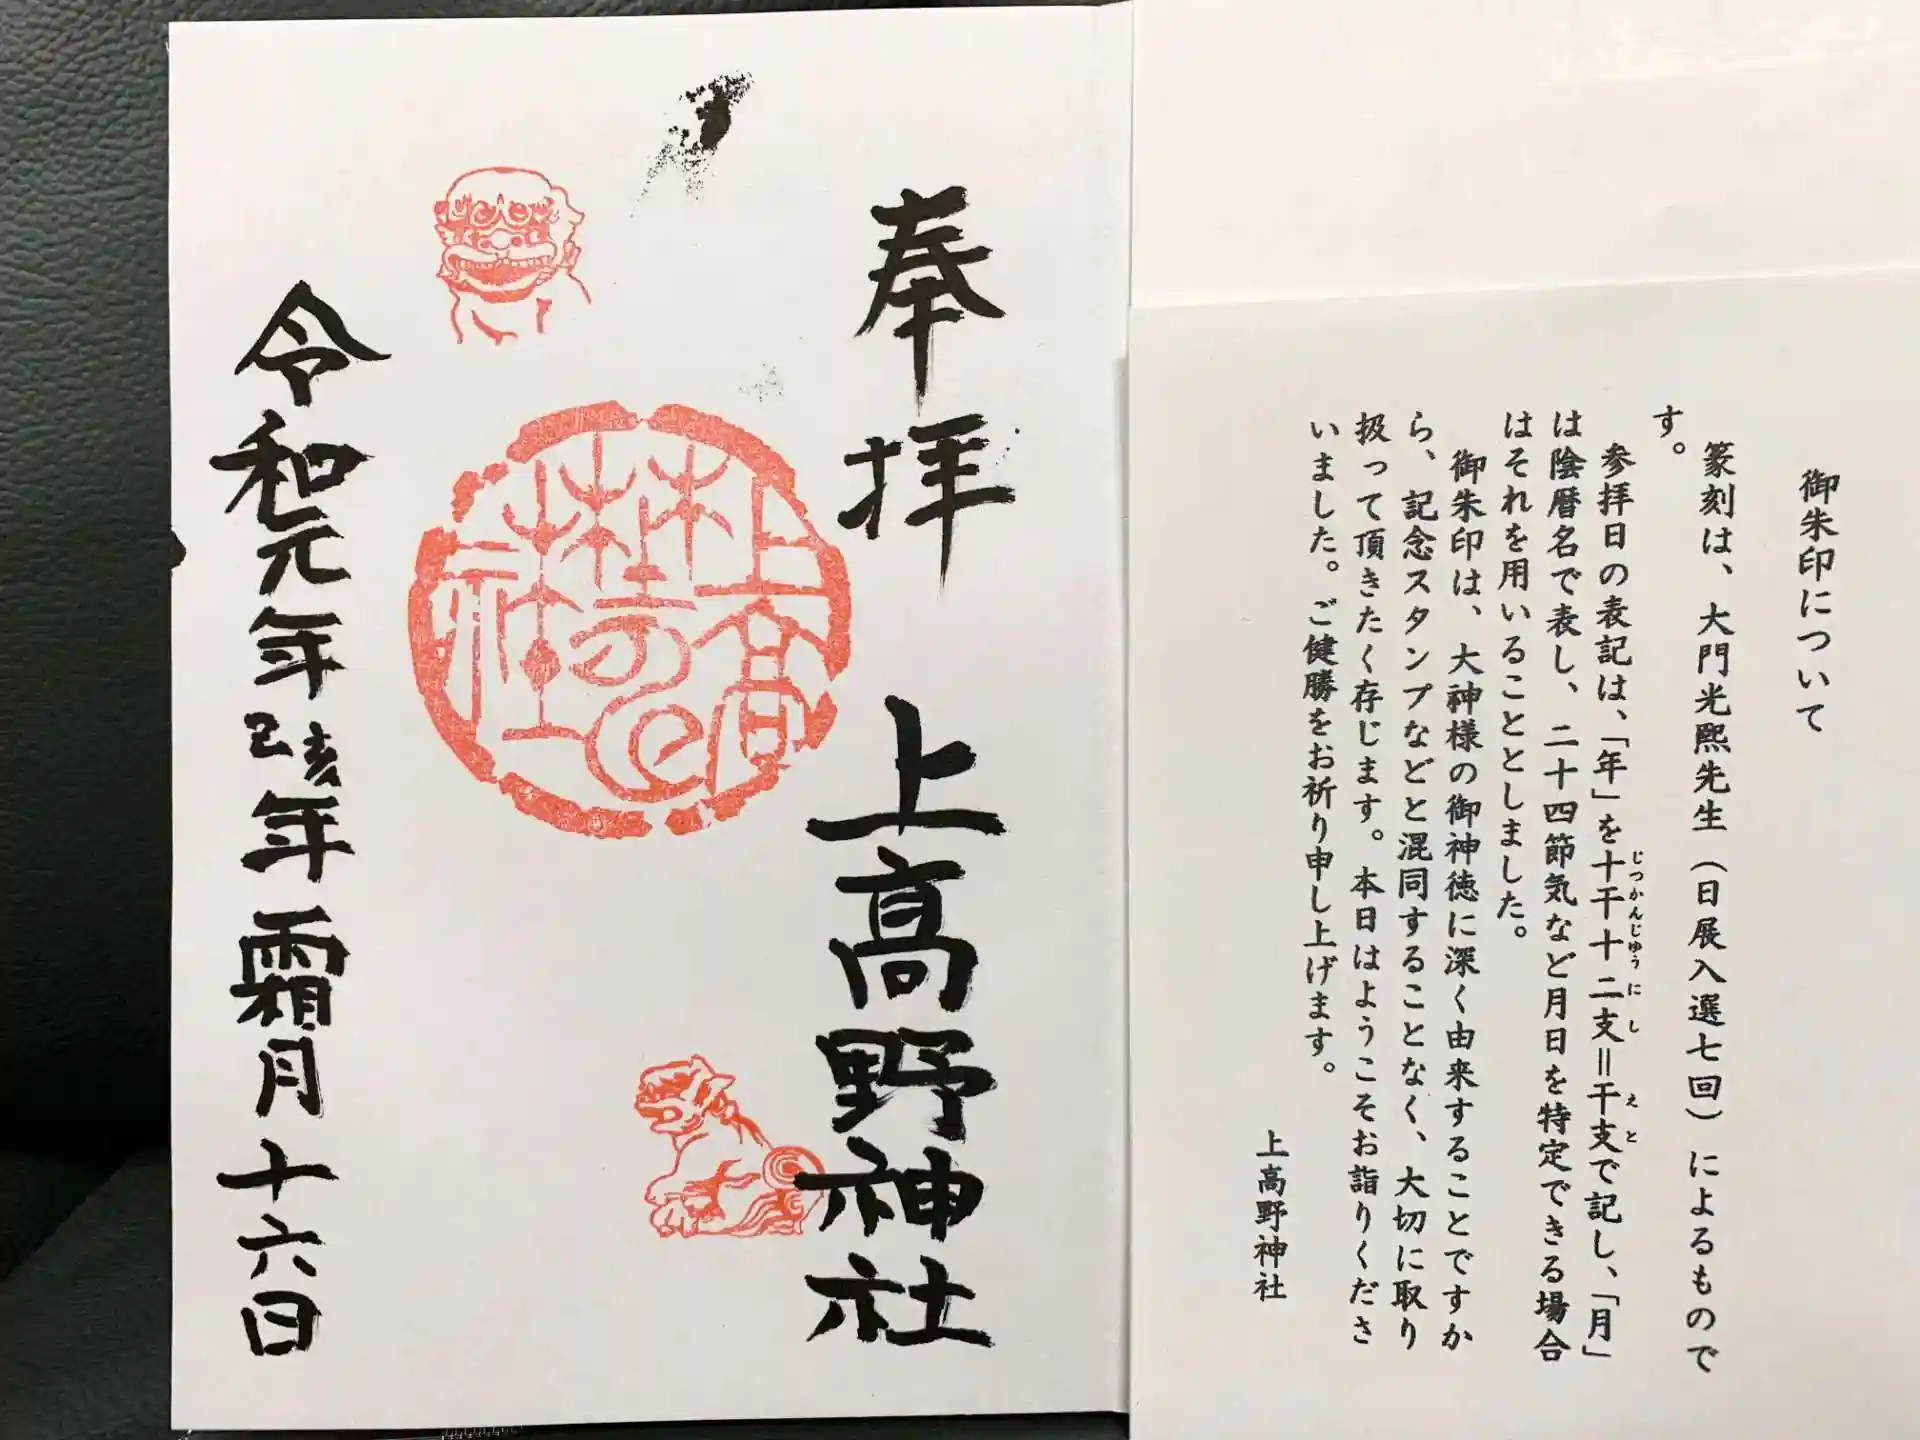 御朱印について
篆刻は、大門光熙先生（日展入選七回）によるもので
す。
参拝日の表記は、「年」を十干十二支＝干支で記し、「月」
じっかんじゅうにし
えと
は陰暦名で表し、二十四節気など月日を特定できる場合
はそれを用いることとしました。
御朱印は、大神様の御神徳に深く由来することですか
ら、記念スタンプなどと混同することなく、大切に取り
扱って頂きたく存じます。本日はようこそお詣りくださ
いました。ご健勝をお祈り申し上げます。
上高野神社
奉拝 上高野神社
令和元年己亥年霜月十六日